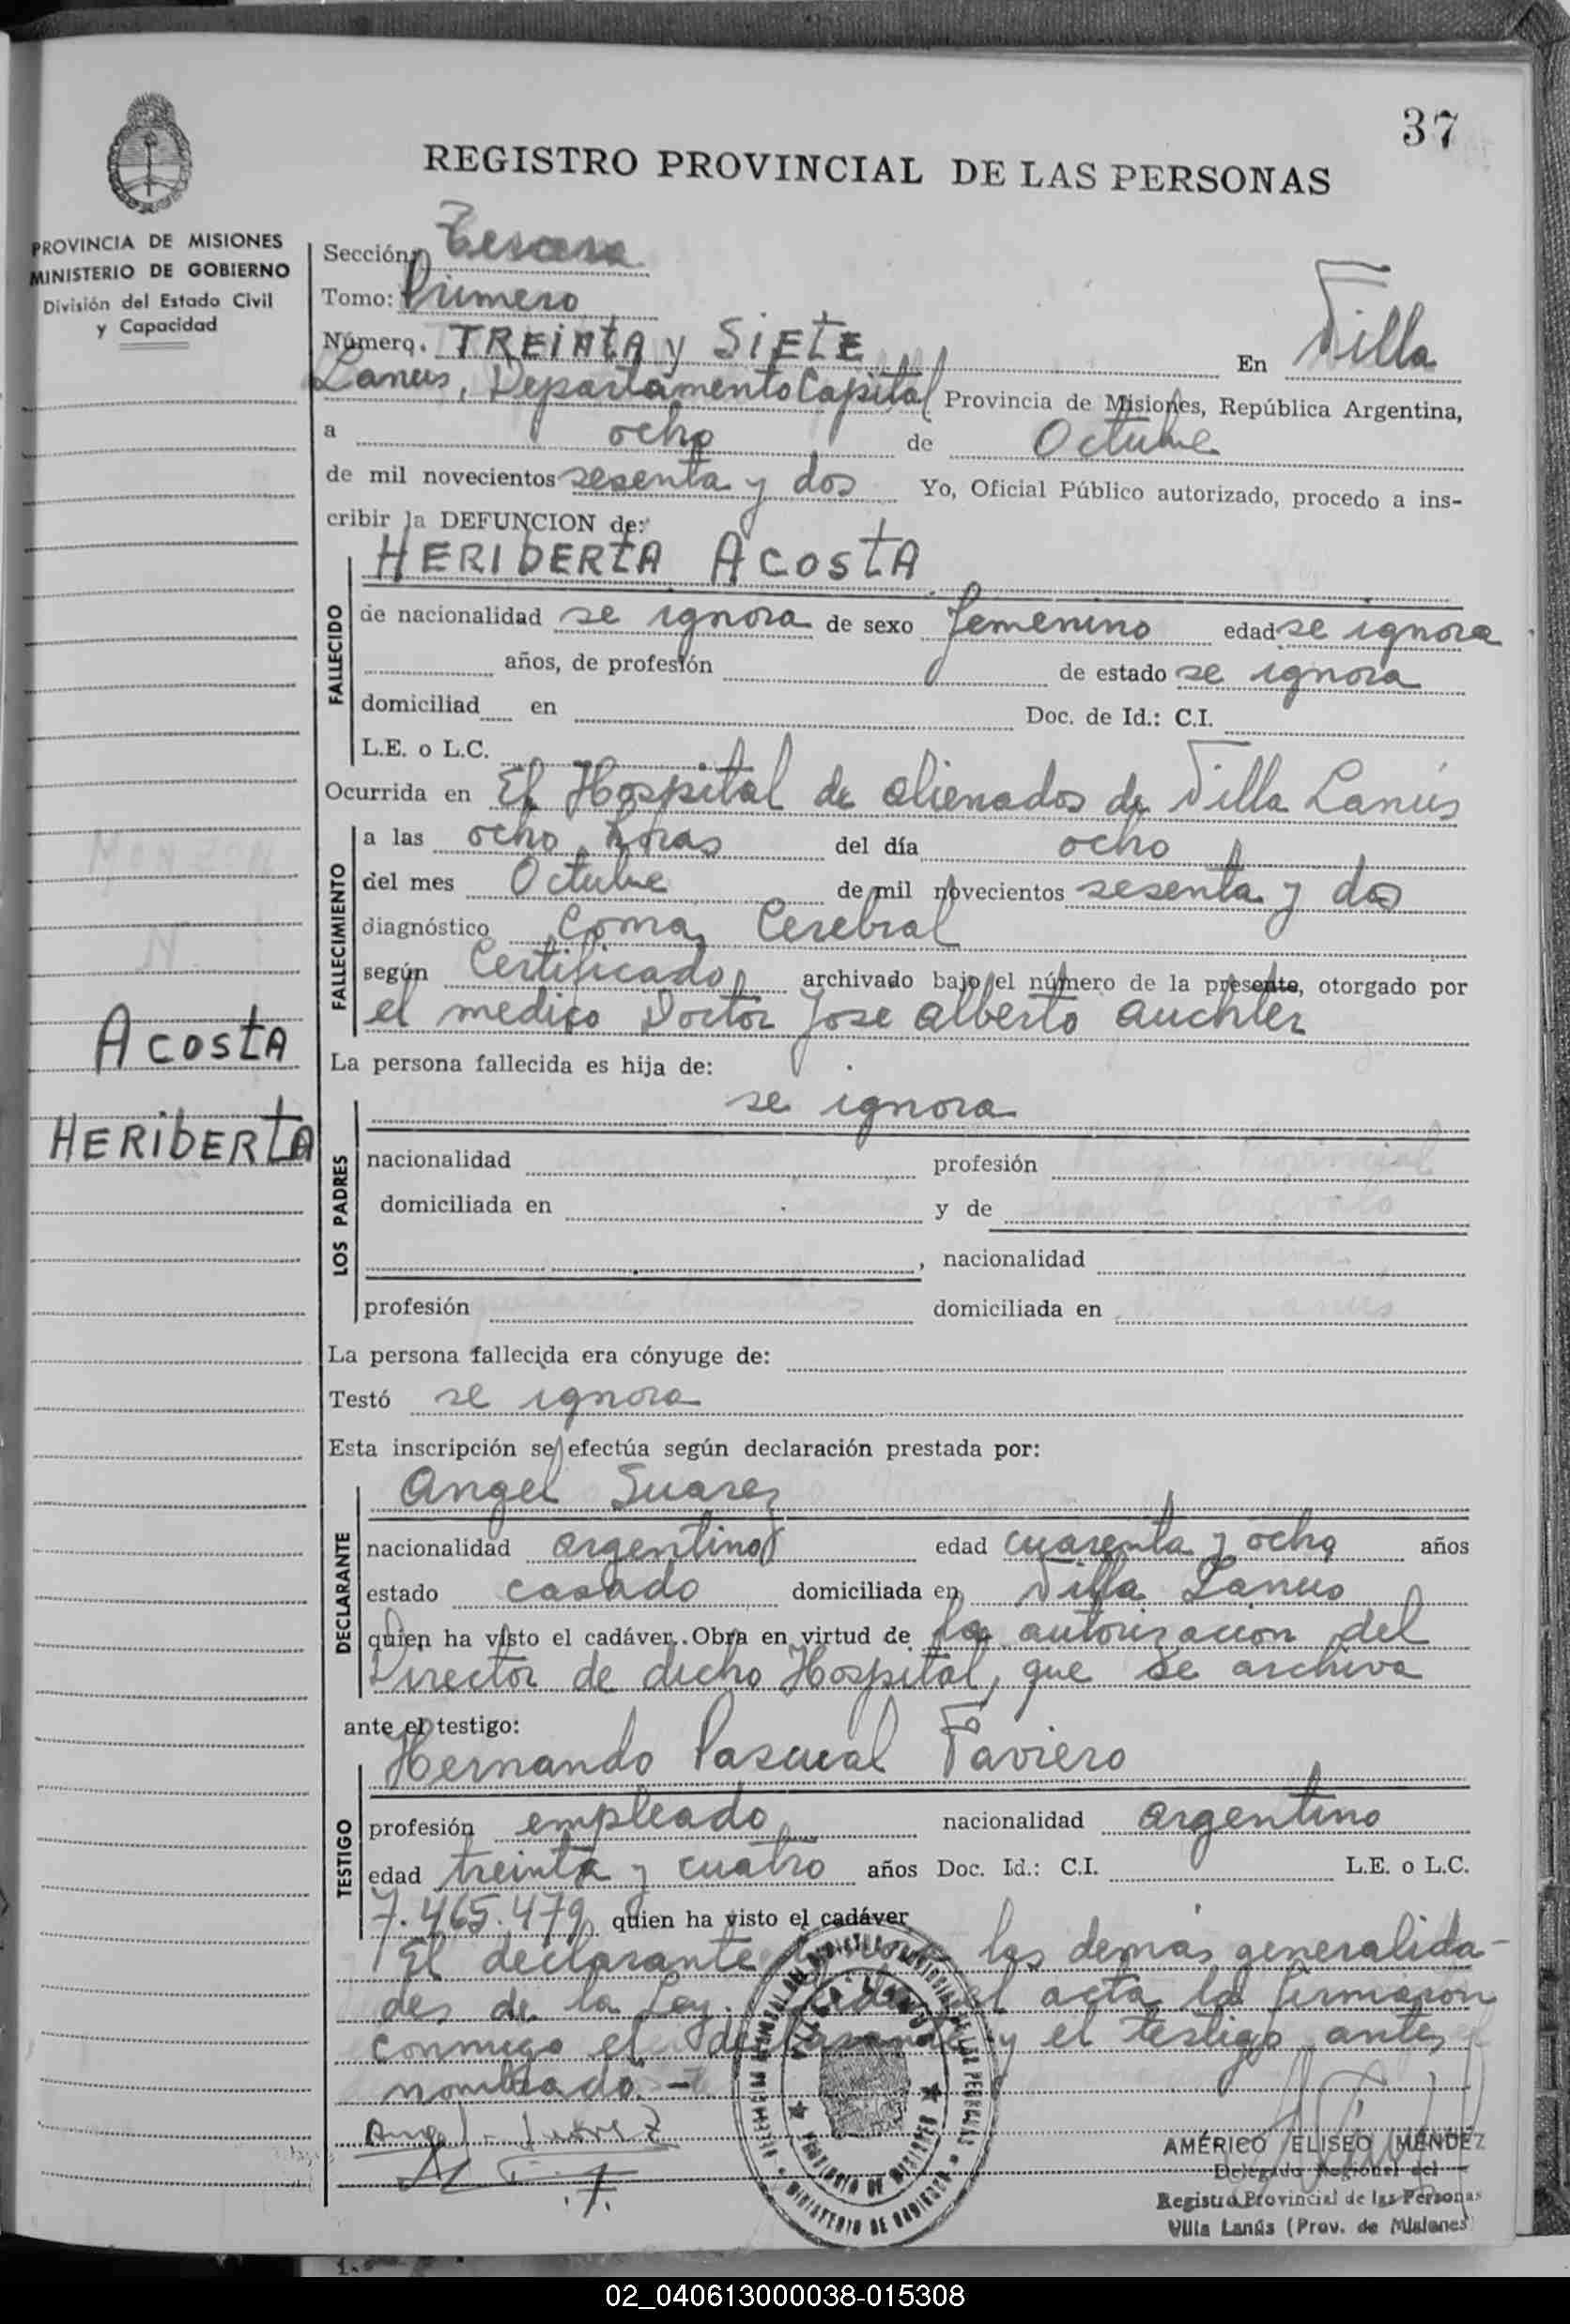 37
REGISTRO PROVINCIAL DE LAS PERSONAS
PROVINCIA DE MISIONES
MINISTERIO DE GOBIERNO
División del Estado Civil
y Capacidad
Sección: Tercera
Tomo: Primero
Número. TREINTA y SIETE En Villa
Lanus, Departamento Capital Provincia de Misiones, República Argentina,
a ocho de Octubre
de mil novecientos sesenta y dos Yo, Oficial Público autorizado, procedo a ins-
cribir la DEFUNCION de:
HERIBERTA ACOSTA
FALLECIDO
de nacionalidad se ignora de sexo femenino edad se ignora
años, de profesión de estado se ignora
domiciliad en Doc. de Id.: C.I.
L.E. o L.C.
Ocurrida en El Hospital de alienados de Villa Lanús
FALLECIMIENTO
a las ocho horas del día ocho
del mes Octubre de mil novecientos sesenta y dos
diagnóstico Coma Cerebral
según Certificado archivado bajo el número de la presente, otorgado por
el medico Doctor Jose Alberto Auchter
ACOSTA
HERIBERTA
La persona fallecida es hija de:
se ignora
LOS PADRES
nacionalidad profesión
domiciliada en y de
, nacionalidad
profesión domiciliada en
La persona fallecida era cónyuge de:
Testó se ignora
Esta inscripción se efectúa según declaración prestada por:
Angel Suarez
DECLARANTE
nacionalidad argentino edad cuarenta y ocho años
estado casado domiciliada en Villa Lanus
quien ha visto el cadáver. Obra en virtud de la autorizacion del
Director de dicho Hospital, que se archiva
ante el testigo:
Hernando Pascual Taviero
TESTIGO
profesión empleado nacionalidad argentino
edad treinta y cuatro años Doc. Id.: C.I. L.E. o L.C.
7.465.479 quien ha visto el cadáver
El declarante las demas generalida-
des de la Ley. el acta la firmaron
conmigo el declarante y el testigo antes
nombrado.-
Angel Suarez
AMÉRICO ELISEO MÉNDEZ
Delegado Regional del
Registro Provincial de las Personas
Villa Lanús (Prov. de Misiones)
PROVINCIA DE MISIONES
MINISTERIO DE GOBIERNO
02_040613000038-015308